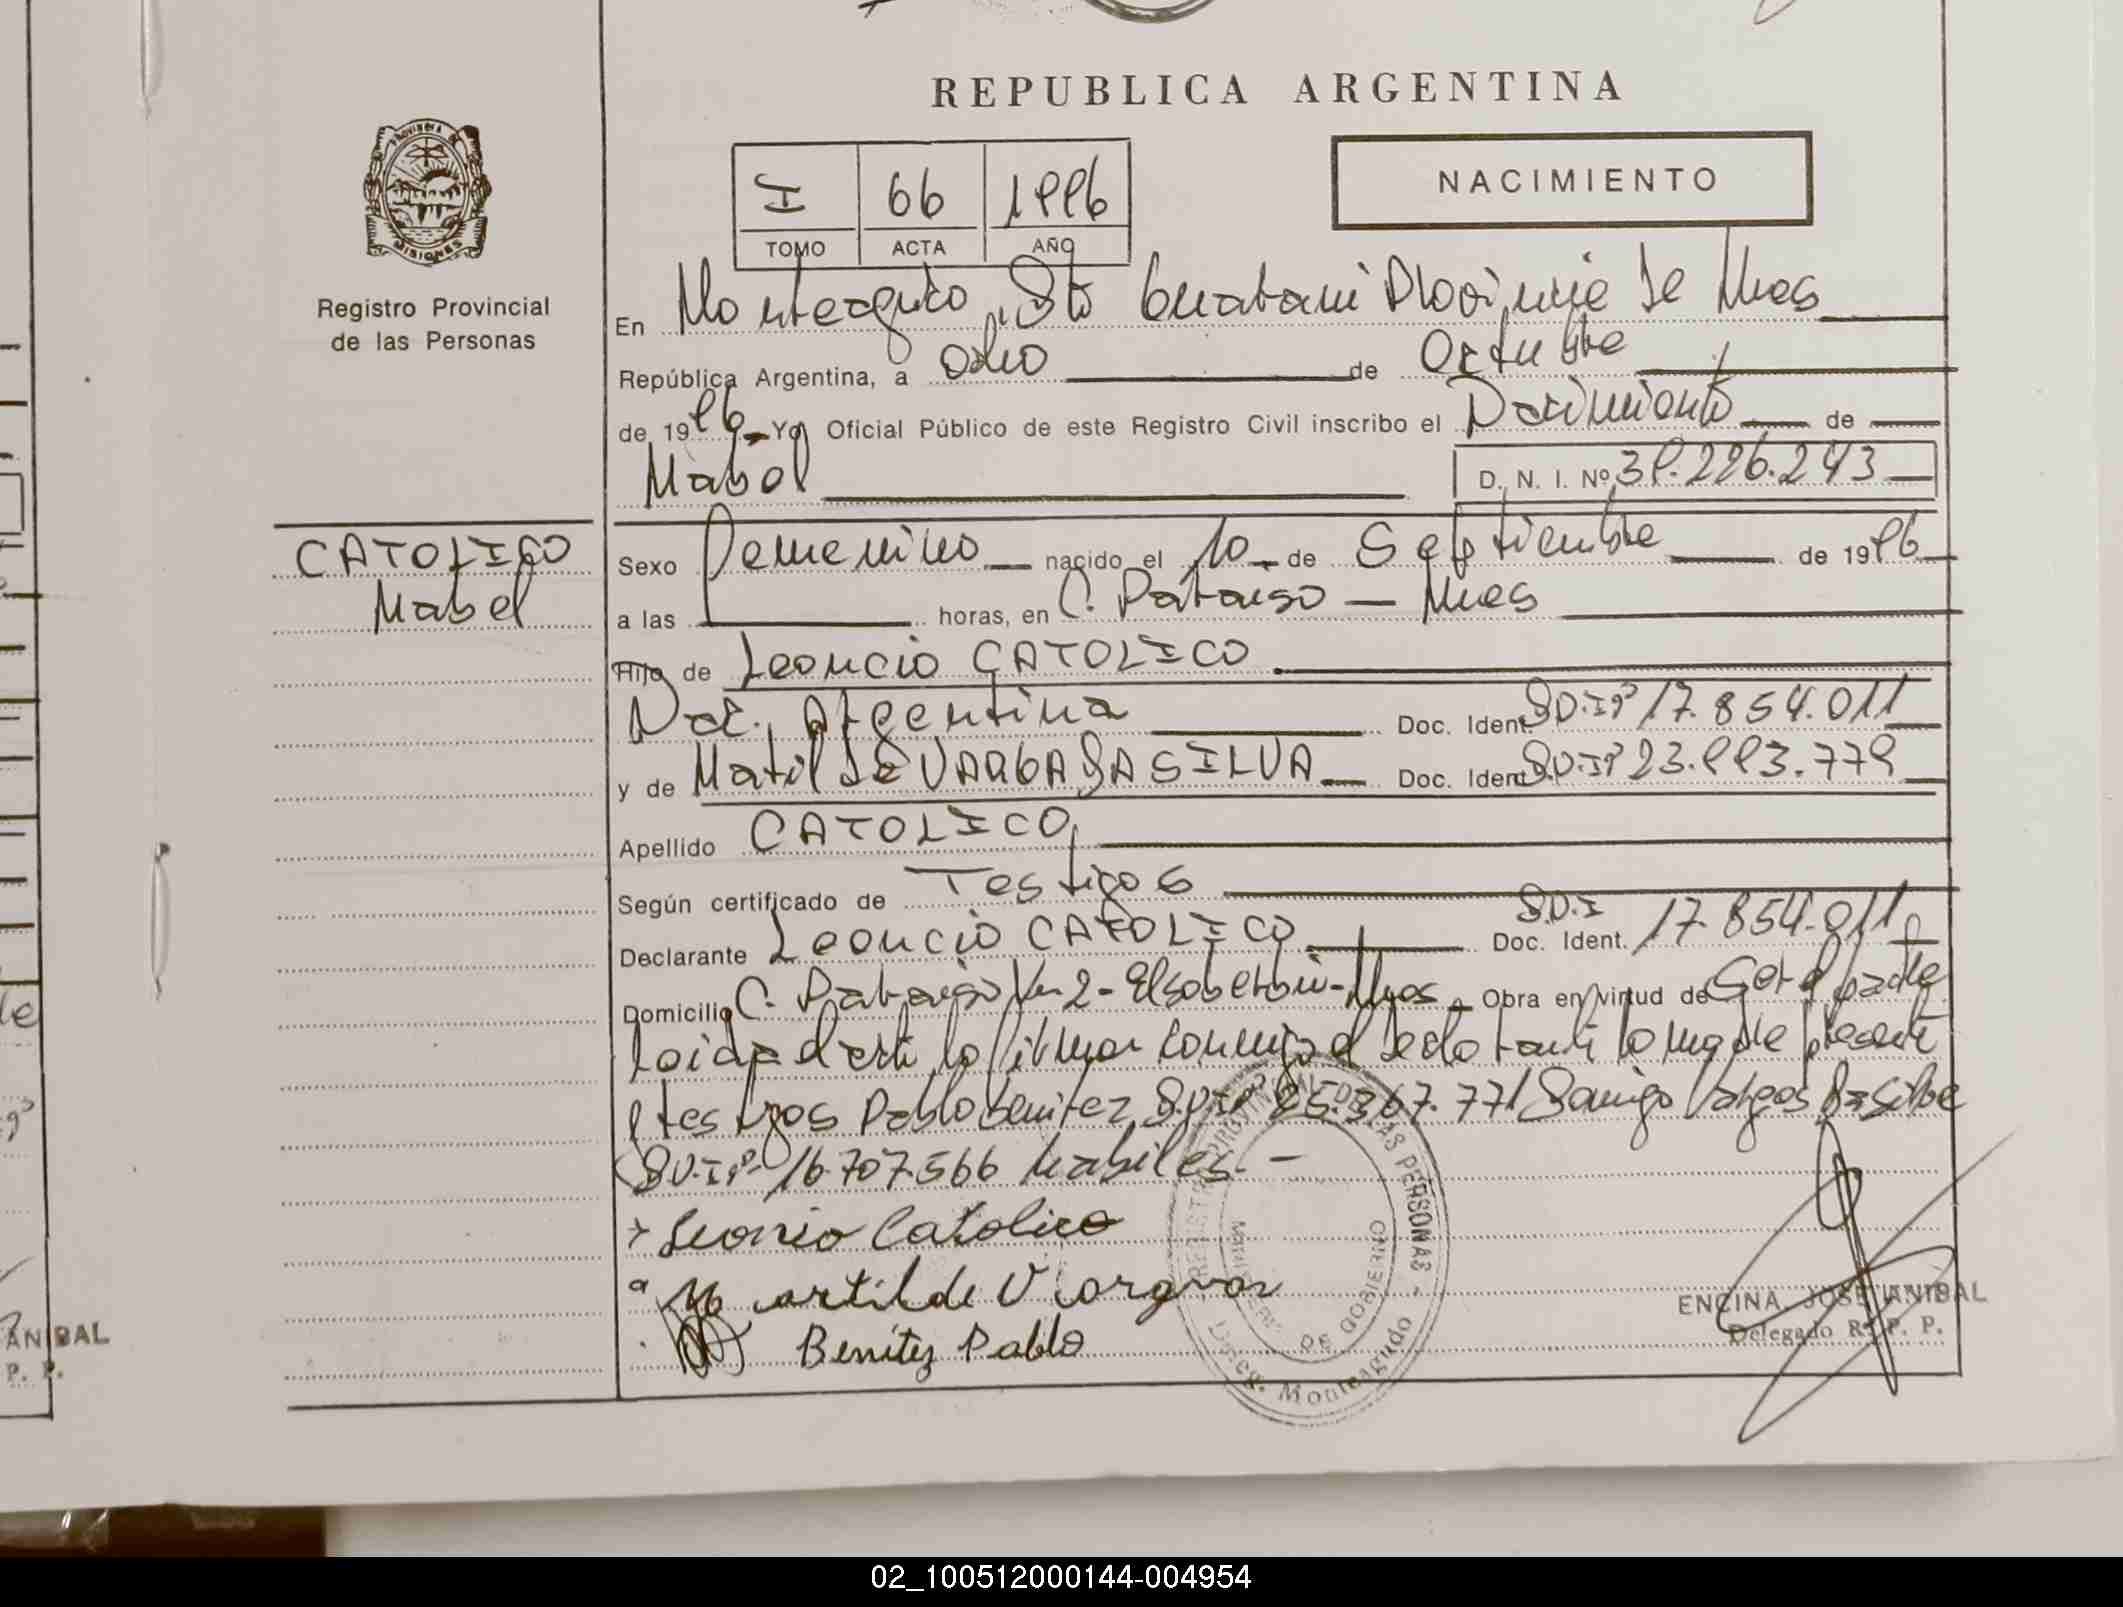 REPUBLICA ARGENTINA
PROVINCIA
MISIONES
Registro Provincial
de las Personas
I 66 1996
TOMO ACTA AÑO
NACIMIENTO
En Monteagudo, Dto Guarani Provincia de Mnes
República Argentina, a ocho de Octubre
de 1996 Yo Oficial Público de este Registro Civil inscribo el Nacimiento de
Mabel D. N. I. Nº 39.226.243
CATOLICO
Mabel
Sexo Femenino nacido el 10 de Septiembre de 1996
a las horas, en C. Paraiso - Mnes
Hijo de Leoncio CATOLICO
Nac. Argentina Doc. Ident. D.N.Iº 17.854.011
y de Matilde VARGA DA SILVA Doc. Ident. D.N.Iº 23.993.779
Apellido CATOLICO
Según certificado de Testigos
Declarante Leoncio CATOLICO Doc. Ident. D.N.I 17.854.011
Domicilio C. Paraiso Km 2 - Elsoberbio - Mnes Obra en virtud de Ser el padre
Leida el acta la firman conmigo el declarante la madre presente
y testigos Pablo Benitez D.N.Iº 25.367.771 Domingo Vargas Da Silva
D.N.Iº 16.707.566 habiles. -
Leonsio Catolico
Martilde Vargas
Benítez Pablo
REGISTRO PROVINCIAL DE LAS PERSONAS -
MINISTERIO DE GOBIERNO
Deleg. Monteagudo
ENCINA, JOSE ANIBAL
Delegado R. P. P.
ANIBAL
P. P.
02_100512000144-004954